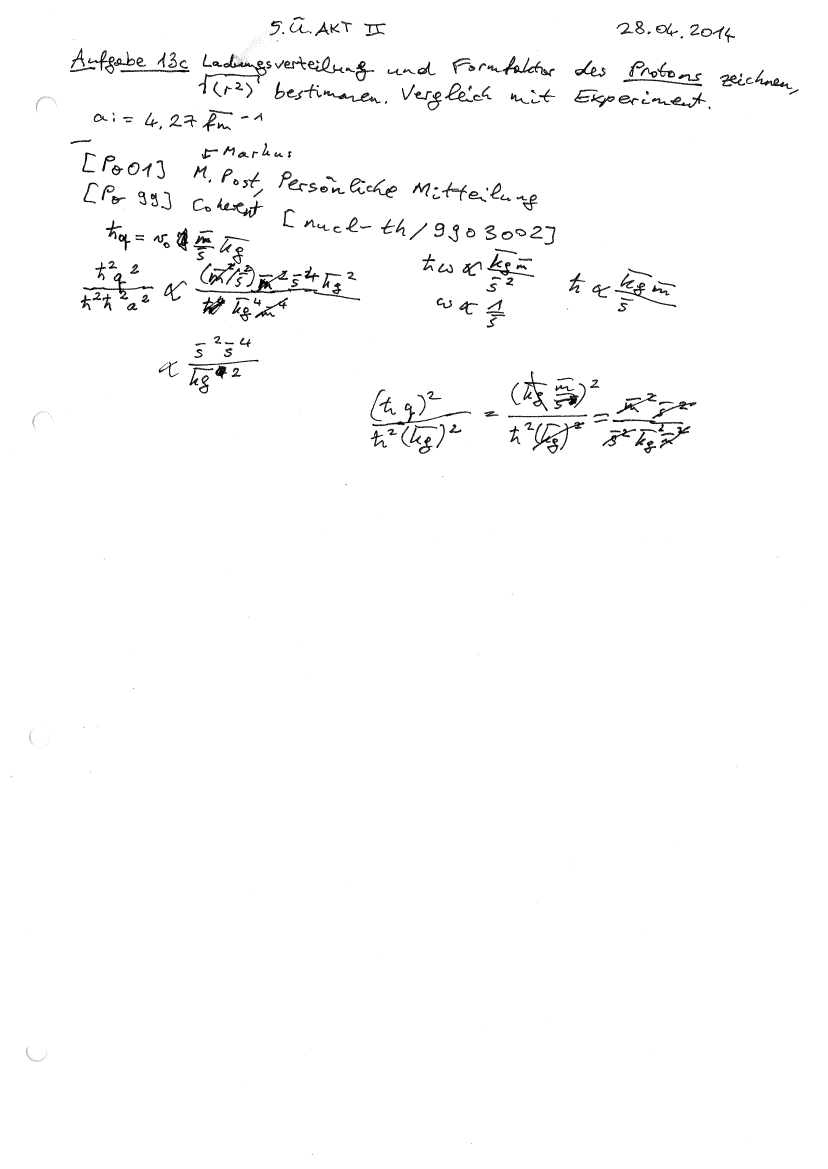 5. Ü. AKT II 28.04.2014
Aufgabe 13c Ladungsverteilung und Formfaktor des Protons zeichnen,
√⟨r²⟩ bestimmen. Vergleich mit Experiment.
a := 4,27 fm⁻¹
← Markus
[Po01] M. Post, Persönliche Mitteilung
[Po 99] Coherent [nucl-th/9903002]
ħq = v₀ m/s kg
ħ²q²/ħ²ħ²a² ∝ (m²/s²) m² s⁴ kg²/kg⁴ m⁴ ħω ∝ kg m/s² ħ ∝ kg m/s
ω ∝ 1/s
∝ s² s⁴/kg²
(ħq)²/ħ²(kg)² = (kg m/s)²/ħ²(kg)² = m² s²/s² kg² m²